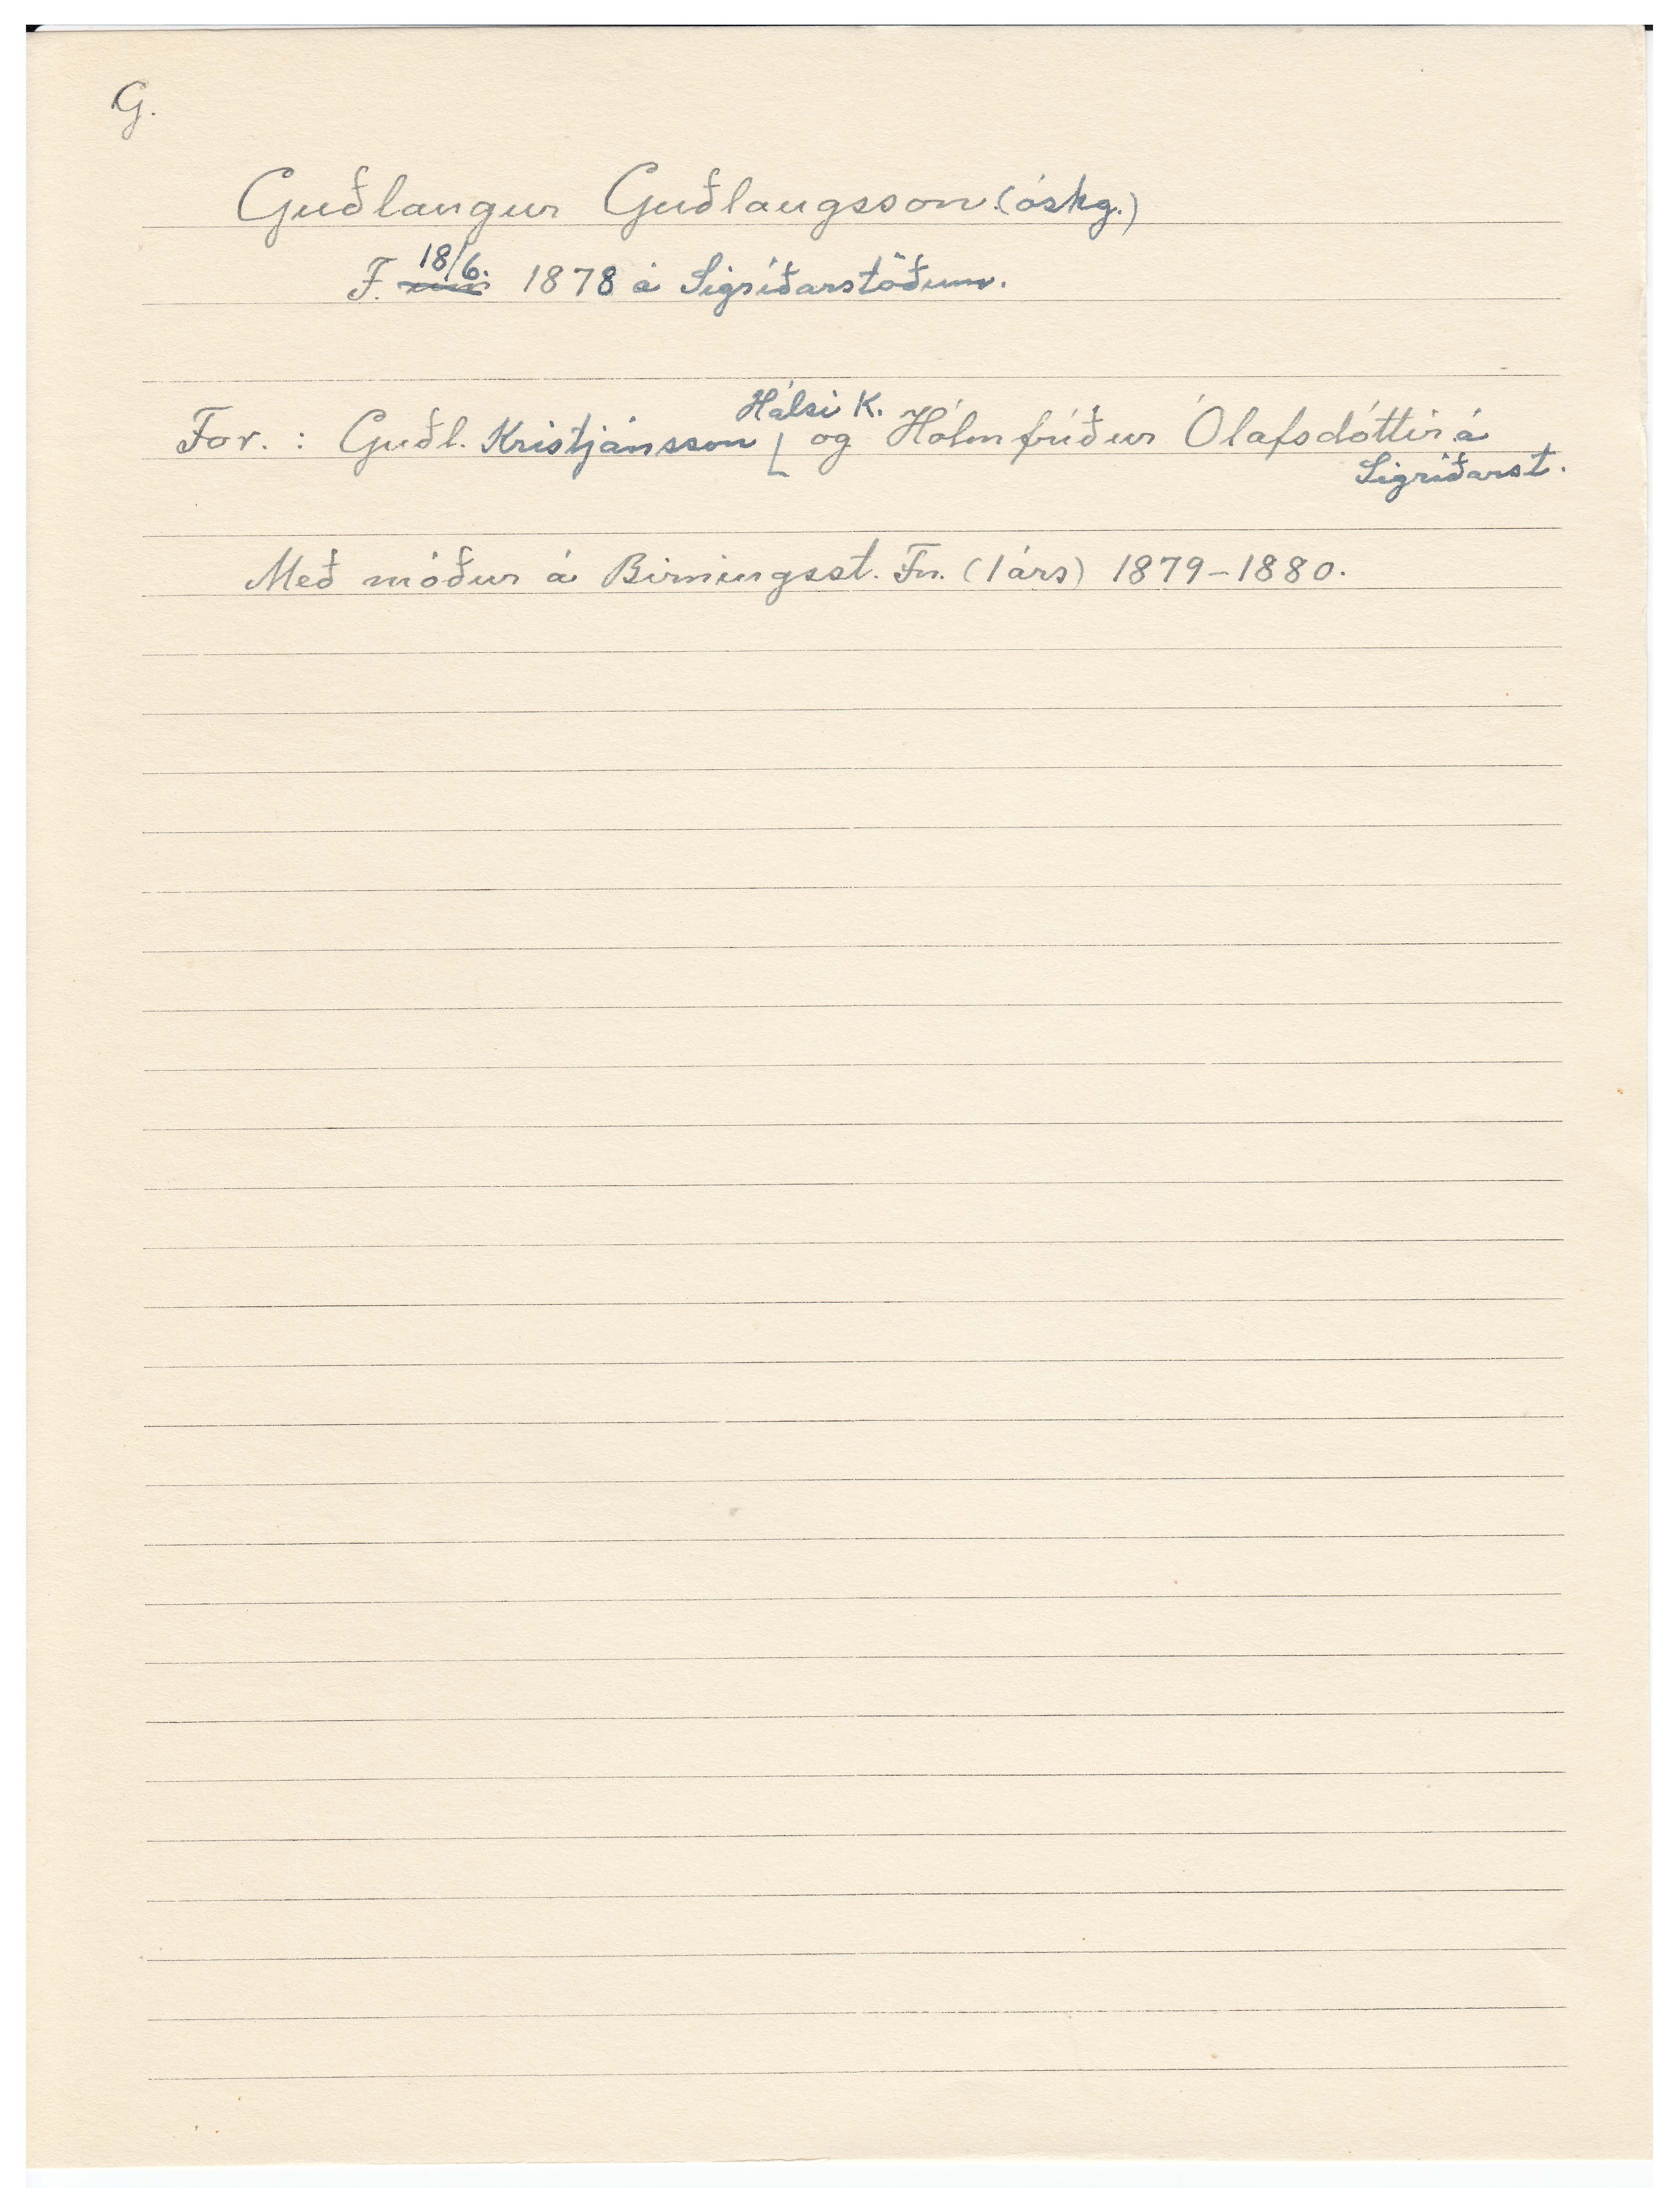 G.
Guðlaugur Guðlaugsson. (óskg.)
F. 18/6. 1878 á Sigríðarstöðum.
For. : Guðl. Kristjánsson Hálsi K. og Hólmfríður Ólafsdóttir á
Sigríðarst.
Með móður á Birningsst. Fn. (1 árs) 1879-1880.